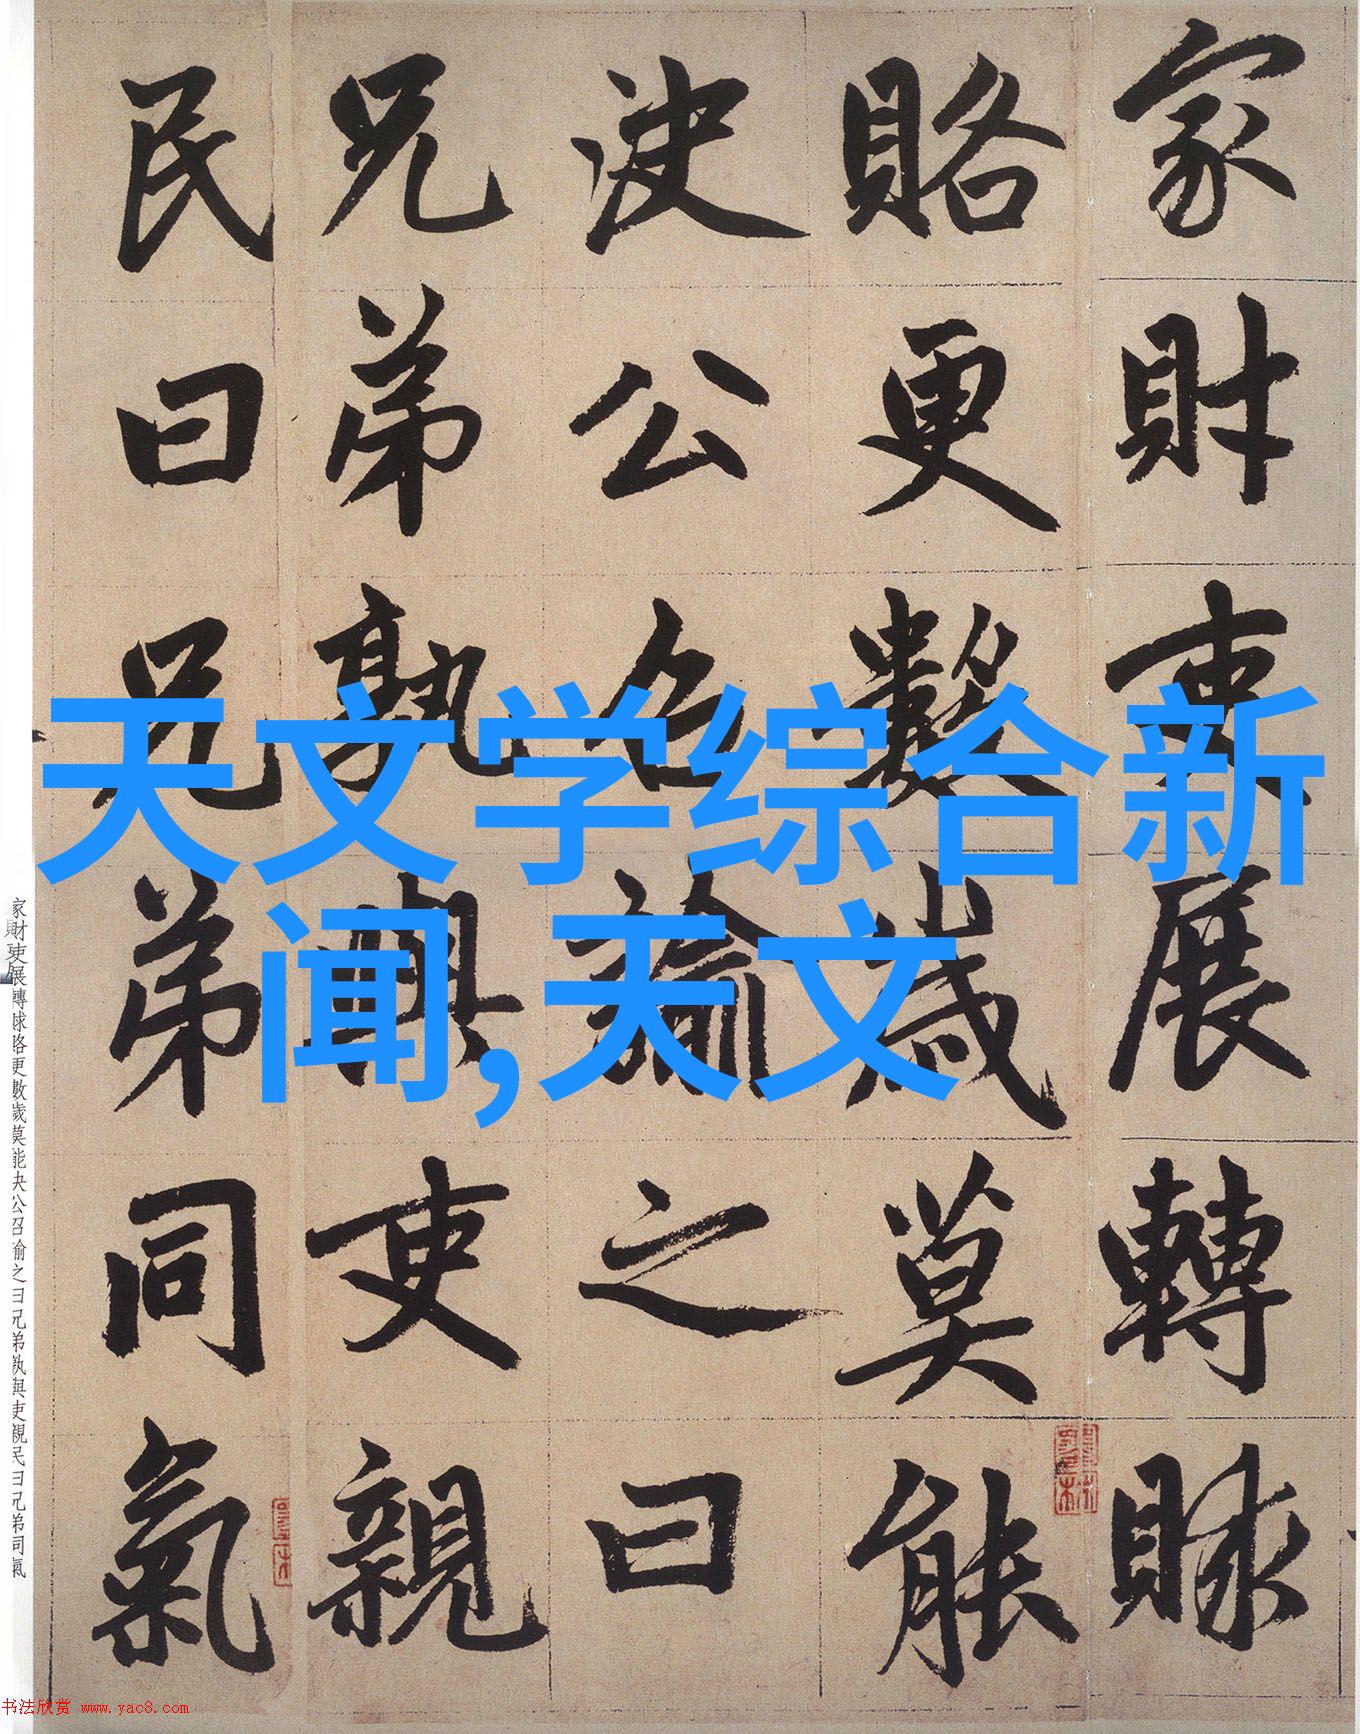 家財吏展轉賕
賂更數歲莫能
決公召諭之曰
兄弟孰與吏親
民曰兄弟同氣
天文学综合新
闻,天文
家財吏展轉賕賂更數歲莫能決公召諭之曰兄弟孰與吏親民曰兄弟同氣
书法欣赏 www.yac8.com